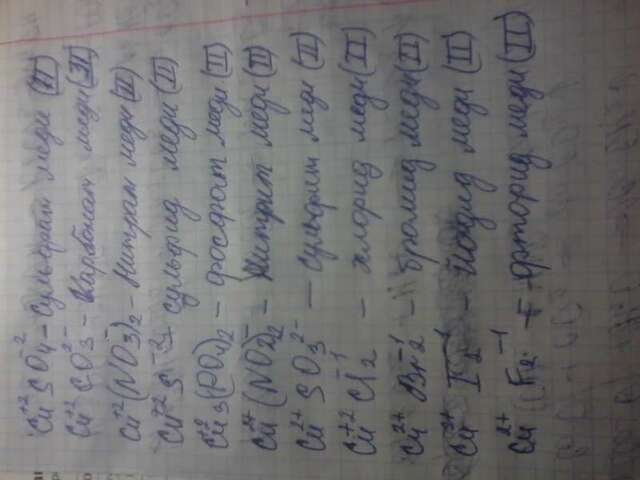 Cu⁺²SO₄⁻² – Сульфат меди (II)
Cu⁺²CO₃²⁻ – Карбонат меди (II)
Cu⁺²(NO₃⁻)₂ – Нитрат меди (II)
Cu⁺²S⁻² – сульфид меди (II)
Cu⁺²₃(PO₄)₂ – фосфат меди (II)
Cu²⁺(NO₂)₂⁻ – Нитрит меди (II)
Cu²⁺SO₃²⁻ – Сульфит меди (II)
Cu⁺²Cl₂⁻¹ – хлорид меди (II)
Cu²⁺Br₂⁻¹ – бромид меди (II)
Cu²⁺I₂⁻¹ – йодид меди (II)
Cu²⁺F₂⁻¹ – фторид меди (II)